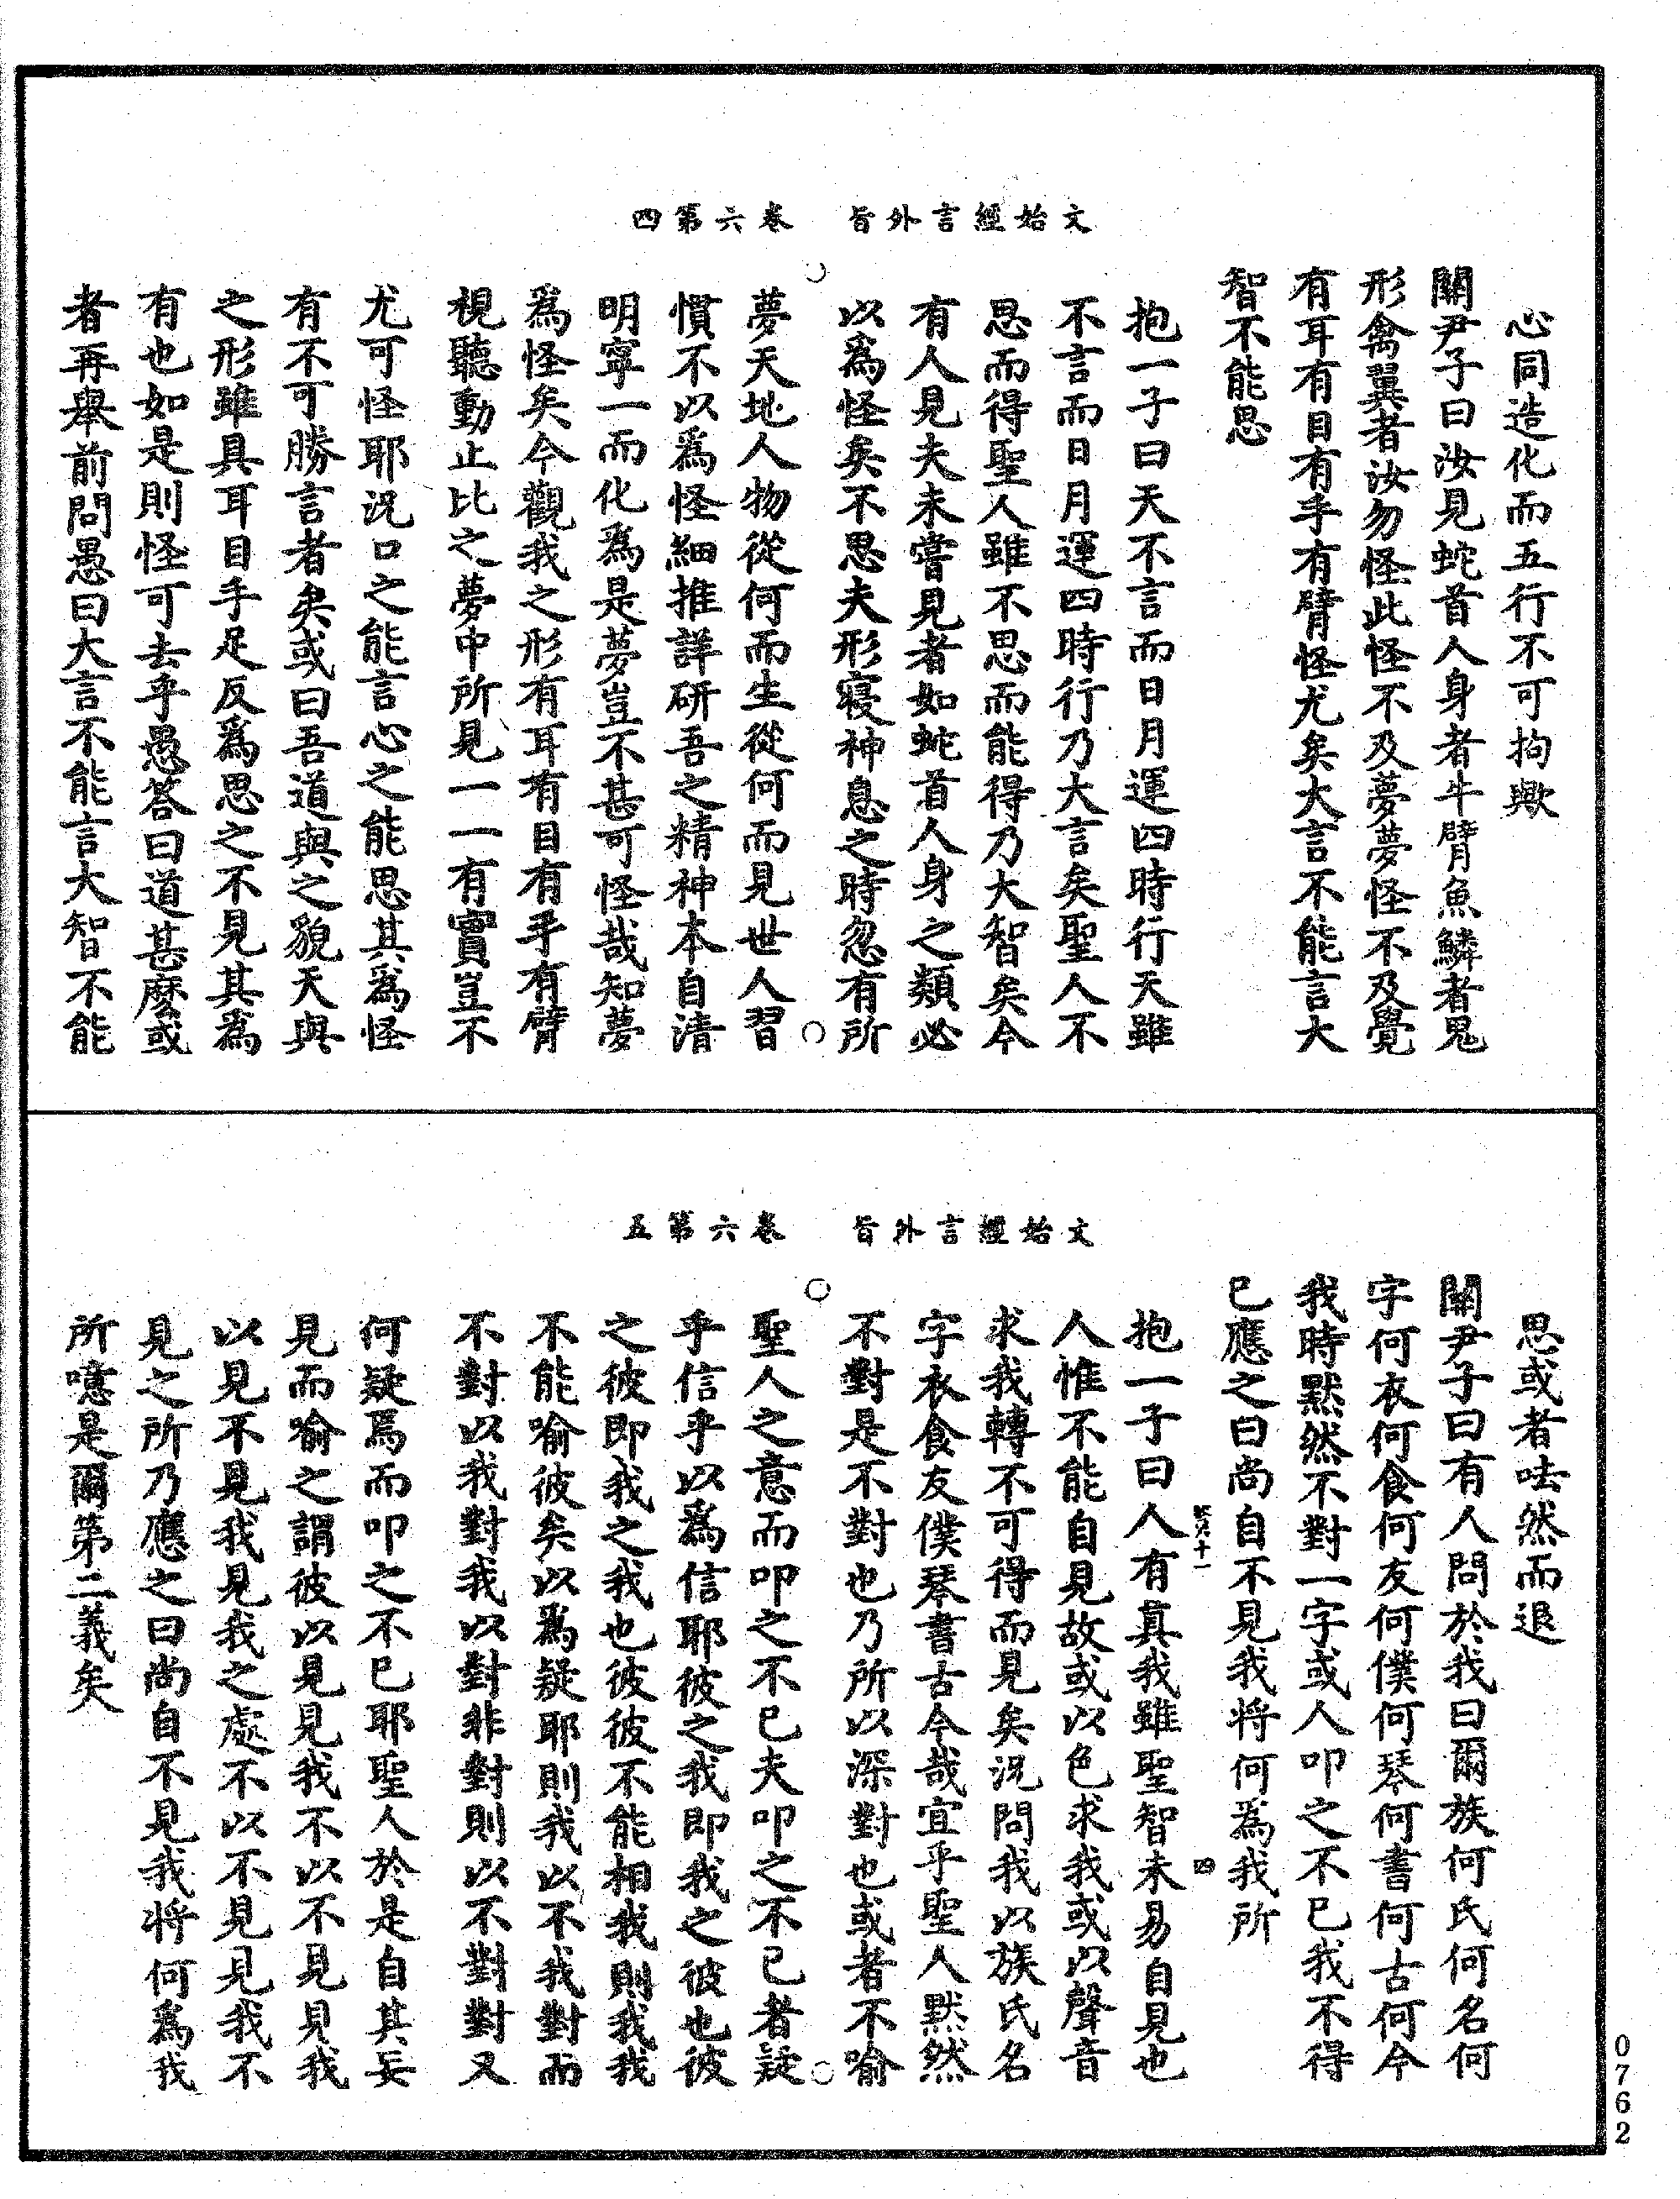 文始經言外旨　卷六第四
心同造化而五行不可拘歟
關尹子曰汝見蛇首人身者牛臂魚鱗者鬼
形禽翼者汝勿怪此怪不及夢夢怪不及覺
有耳有目有手有臂怪尤矣大言不能言大
智不能思
抱一子曰天不言而日月運四時行天雖
不言而日月運四時行乃大言矣聖人不
思而得聖人雖不思而能得乃大智矣今
有人見夫未嘗見者如蛇首人身之類必
以爲怪矣不思夫形寢神息之時忽有所
夢天地人物從何而生從何而見世人習
慣不以爲怪細推詳研吾之精神本自清
明寧一而化爲是夢豈不甚可怪哉知夢
爲怪矣今觀我之形有耳有目有手有臂
視聽動止比之夢中所見一一有實豈不
尤可怪耶況口之能言心之能思其爲怪
有不可勝言者矣或曰吾道與之貌天與
之形雖具耳目手足反爲思之不見其爲
有也如是則怪可去乎愚答曰道甚麼或
者再舉前問愚曰大言不能言大智不能
文始經言外旨　卷六第五
思或者呿然而退
關尹子曰有人問於我曰爾族何氏何名何
字何衣何食何友何僕何琴何書何古何今
我時默然不對一字或人叩之不已我不得
已應之曰尚自不見我將何爲我所
抱一子曰人有真我雖聖智未易自見也
人惟不能自見故或以色求我或以聲音
求我轉不可得而見矣況問我以族氏名
字衣食友僕琴書古今哉宜乎聖人默然
不對是不對也乃所以深對也或者不喻
聖人之意而叩之不已夫叩之不已者疑
乎信乎以爲信耶彼之我即我之彼也彼
之彼即我之我也彼彼不能相我則我我
不能喻彼矣以爲疑耶則我以不我對而
不對以我對我以對非對則以不對對又
何疑焉而叩之不已耶聖人於是自其妄
見而喻之謂彼以見見我不以不見見我
以見不見我見我之處不以不見見我不
見之所乃應之曰尚自不見我將何爲我
所噫是爾第二義矣
四
0762